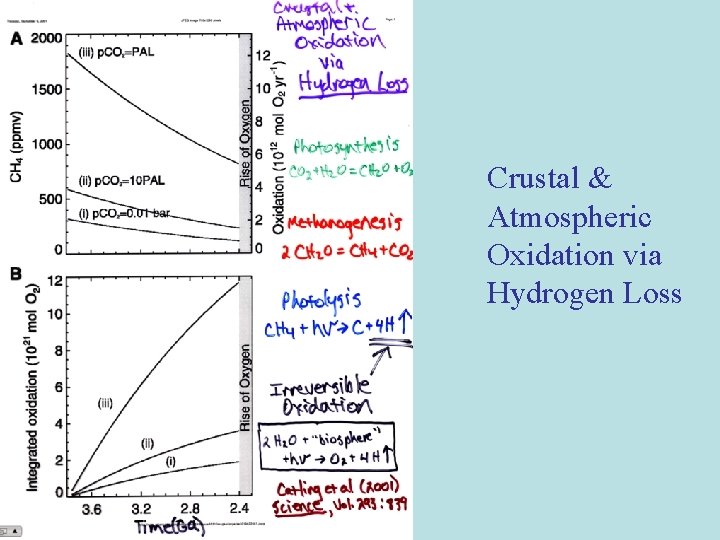 Crustal &
Atmospheric
Oxidation
via
Hydrogen Loss
A
2000
1500
1000
500
0
CH₄ (ppmv)
(iii) pCO₂=PAL
(ii) pCO₂=10PAL
(i) pCO₂=0.01 bar
Rise of Oxygen
12
10
8
6
4
2
0
Oxidation (10¹² mol O₂ yr⁻¹)
Photosynthesis
CO₂+H₂O=CH₂O+O₂
Methanogenesis
2 CH₂O = CH₄+CO₂
B
12
10
8
6
4
2
0
Integrated oxidation (10²¹ mol O₂)
(iii)
(ii)
(i)
Rise of Oxygen
3.6 3.2 2.8 2.4
Time(Ga)
Photolysis
CH₄ + hν → C + 4H↑
Irreversible
Oxidation
2 H₂O + "biosphere"
+hν → O₂ + 4H↑
Catling et al (2001)
Science, Vol. 293: 839
Crustal &
Atmospheric
Oxidation via
Hydrogen Loss